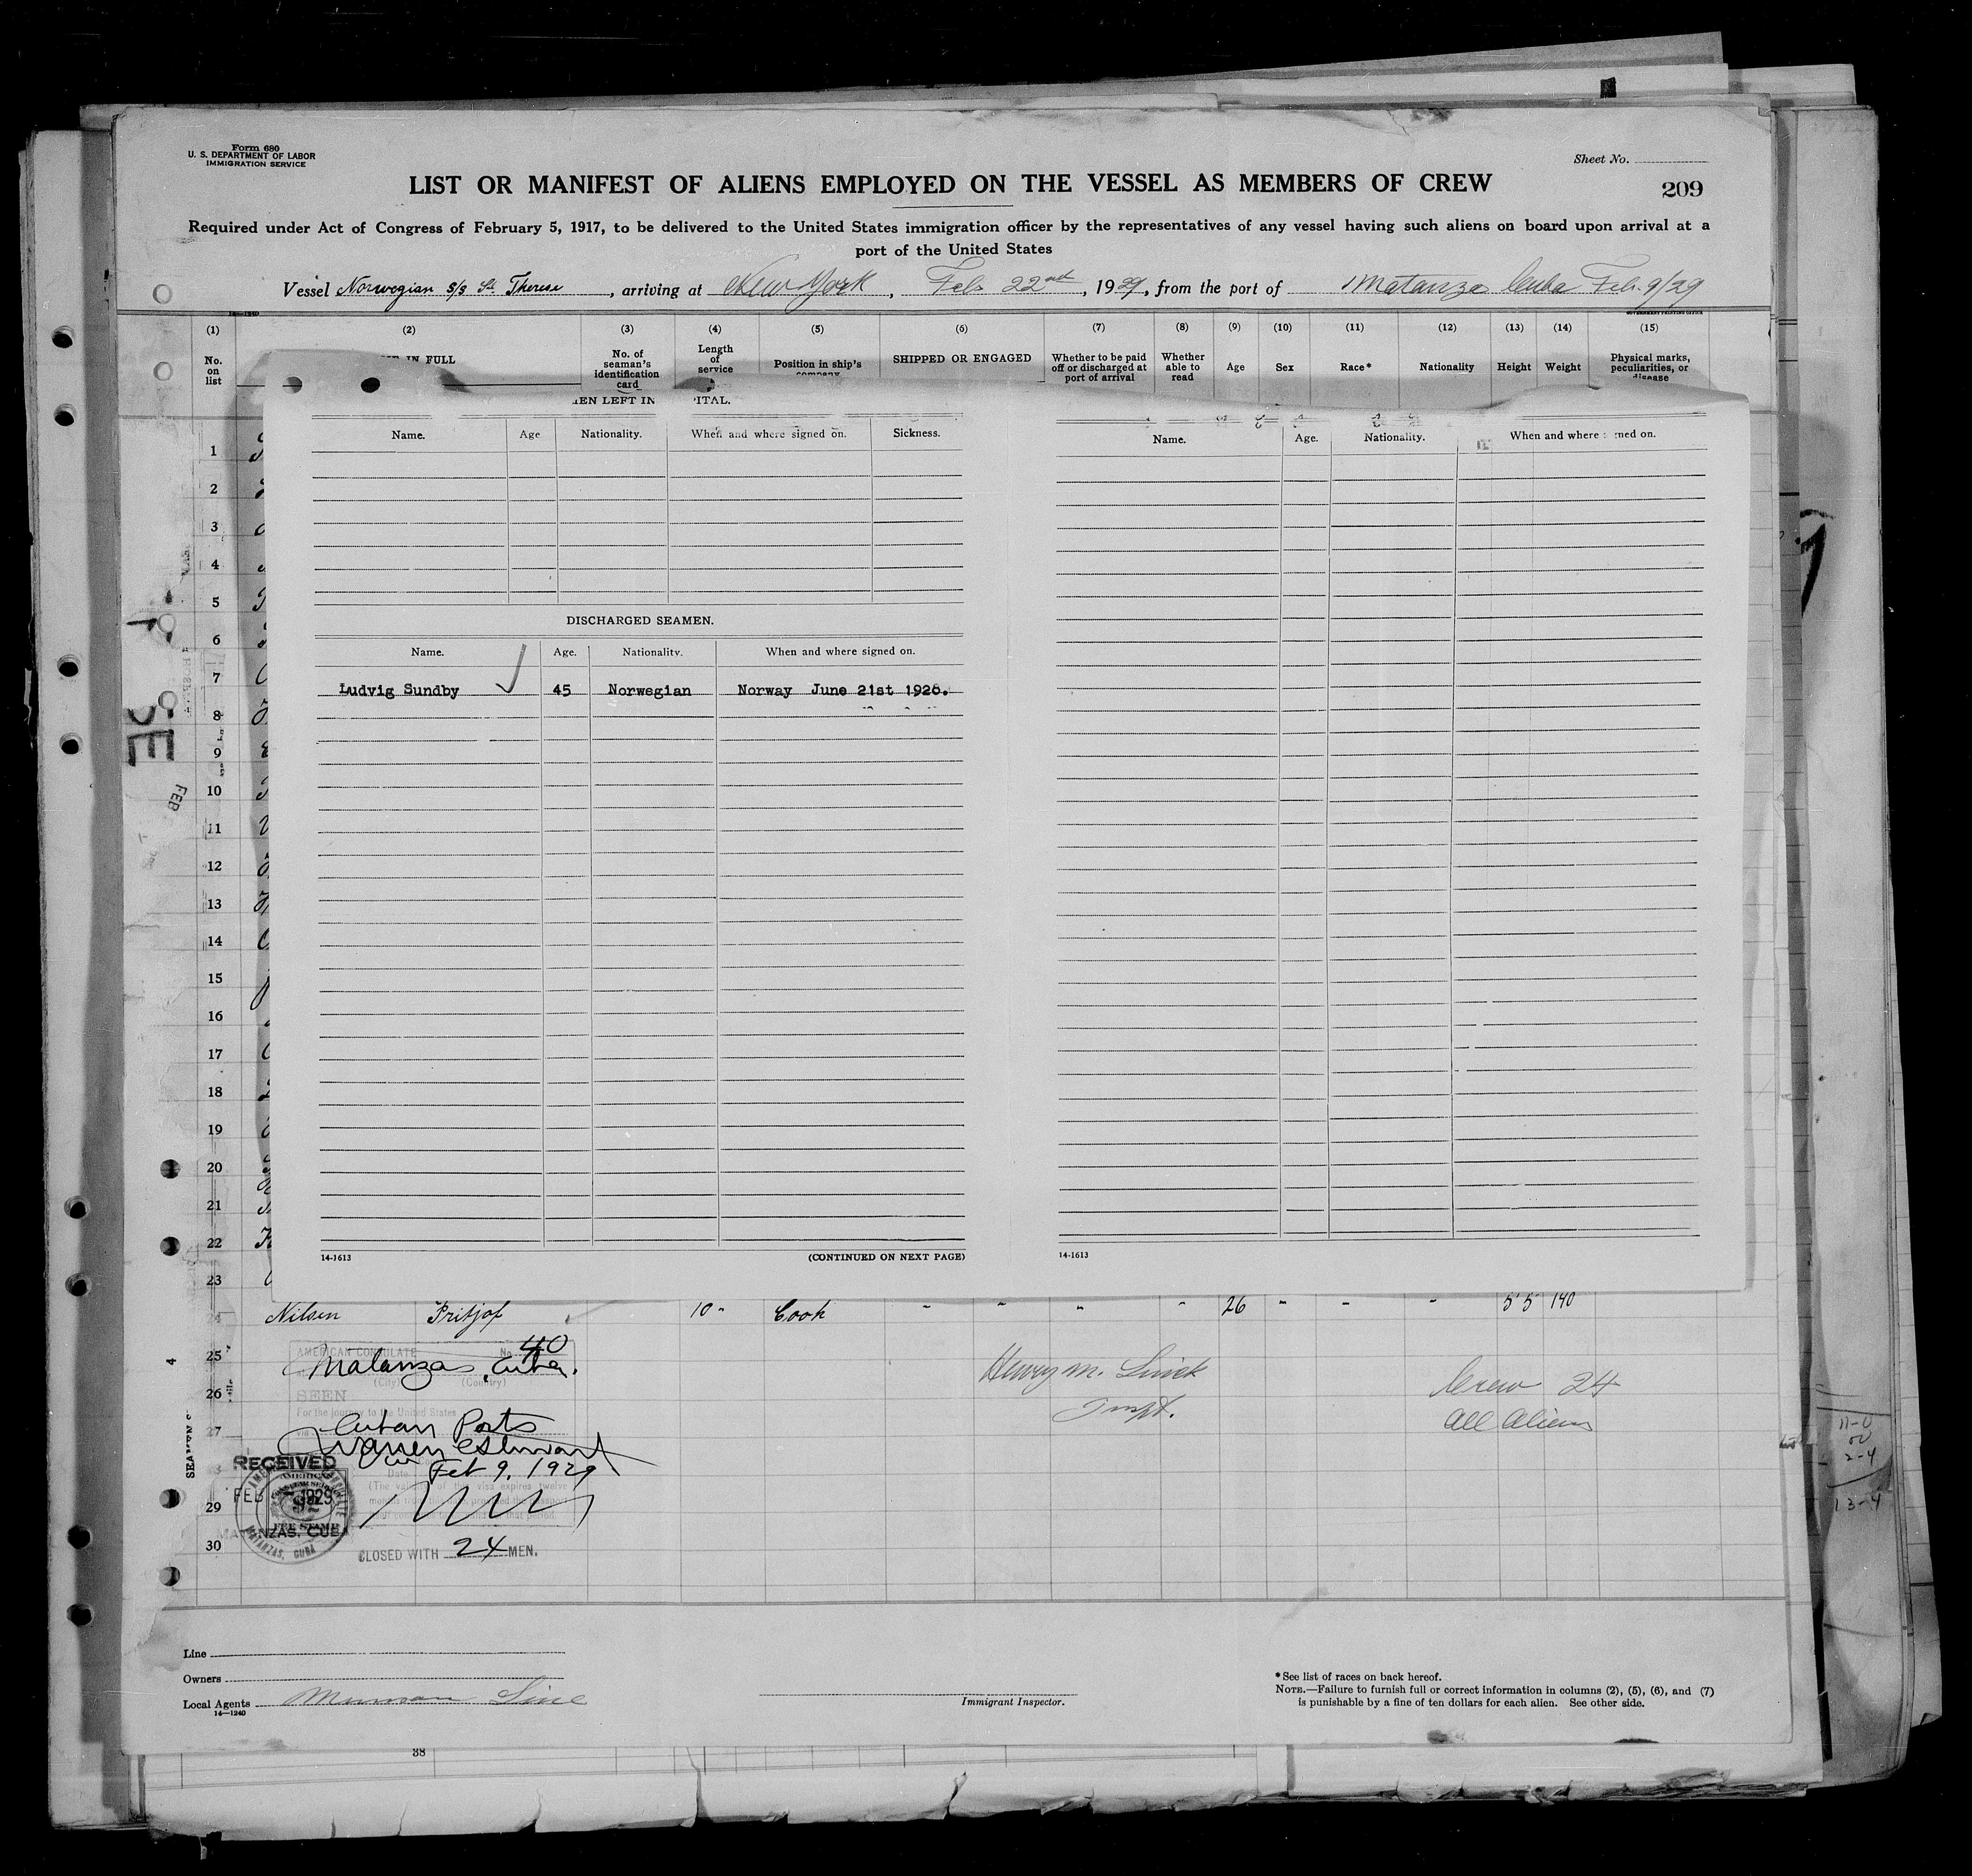 Form 680
U. S. DEPARTMENT OF LABOR
IMMIGRATION SERVICE
Sheet No.
LIST OR MANIFEST OF ALIENS EMPLOYED ON THE VESSEL AS MEMBERS OF CREW
209
Required under Act of Congress of February 5, 1917, to be delivered to the United States immigration officer by the representatives of any vessel having such aliens on board upon arrival at a
port of the United States
Vessel Norwegian s/s St. Therese, arriving at New York, Feb 22nd, 1929, from the port of Matanzas Cuba Feb. 9/29
(1) (2) (3) (4) (5) (6) (7) (8) (9) (10) (11) (12) (13) (14) (15)
No. on list
IN FULL
No. of seaman's identification card
Length of service
Position in ship's company
SHIPPED OR ENGAGED
Whether to be paid off or discharged at port of arrival
Whether able to read
Age
Sex
Race*
Nationality
Height
Weight
Physical marks, peculiarities, or disease
EN LEFT IN PITAL.
Name. Age Nationality. When and where signed on. Sickness.
Name. Age. Nationality. When and where ned on.
DISCHARGED SEAMEN.
Name. Age. Nationality. When and where signed on.
Ludvig Sundby 45 Norwegian Norway June 21st 1926.
14-1613
(CONTINUED ON NEXT PAGE)
14-1613
1
2
3
4
5
6
7
8
9
10
11
12
13
14
15
16
17
18
19
20
21
22
23
24 Nilsen Fritjof 10 " Cook " " " " 26 " " " 5' 5 140
25
26
27
29
30
AMERICAN CONSULATE
No. 40
Matanzas, Cuba.
(City) (Country)
SEEN
For the journey to the United States
Cuban Ports
Feb 9, 1929
RECEIVED
FEB 1929
MATANZAS, CUBA
CLOSED WITH 24 MEN.
Henry M.
Inspt.
Crew 24
All Aliens
11-0
2-4
13-4
FEB
4
Line
Owners
Local Agents Munson Line
14—1240
Immigrant Inspector.
*See list of races on back hereof.
NOTE.—Failure to furnish full or correct information in columns (2), (5), (6), and (7)
is punishable by a fine of ten dollars for each alien. See other side.
38